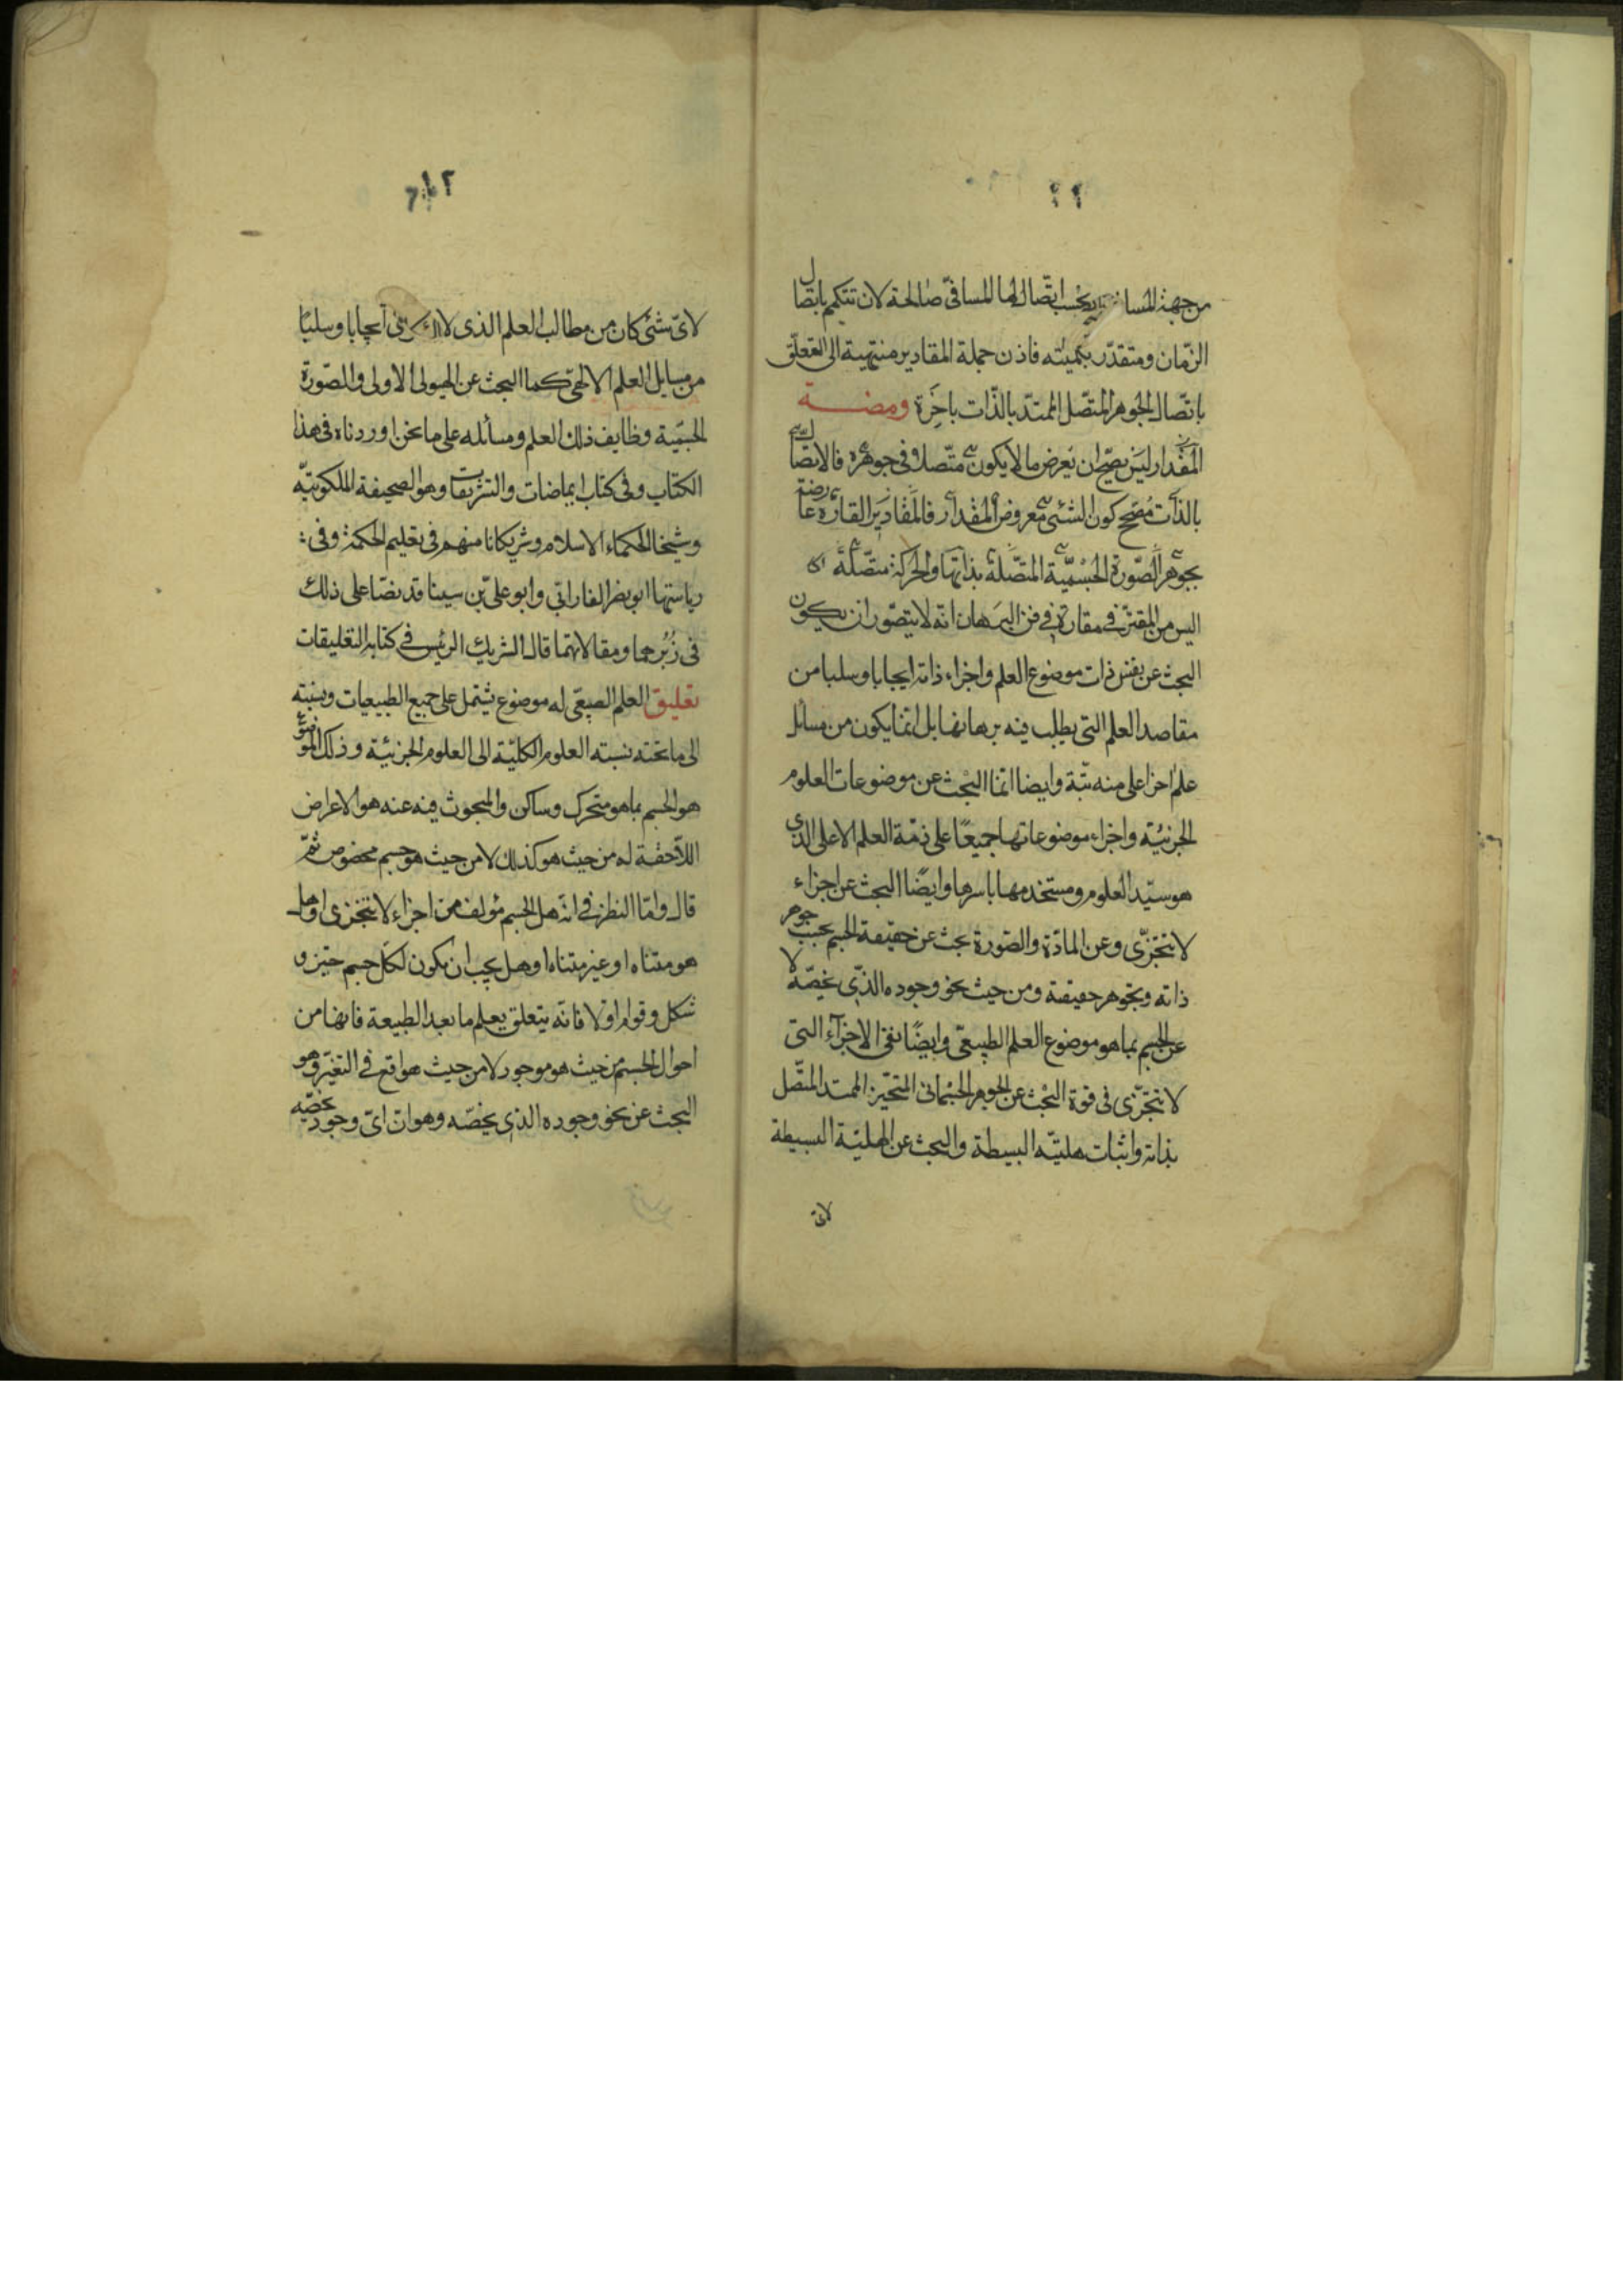 ٢٢
من جهة المسافة بحسب اتصالها المسافىّ صالحة لان تتكمم باتصال
الزمان ومتقدّر بكميّته فاذن جملة المقادير منتهية الى التعلّق
باتّصال الجوهر المتّصل الممتدّ بالذّات باخرة ومضة
المقدار ليس يصحّ ان يعرض ما لا يكون متّصلا فى جوهره فالاتّصال
بالذات مصحح كون الشئى معروض المقدار فالمقادير القارّة عارضة
بجوهر الصّورة الجسميّة المتّصلة بذاتها والحركة متصّلة
اليس من المقترّ فى مقارّه فى فن البرهان انه لا يتصوّر ان يكون
البحث عن نفس ذات موضوع العلم واجزاء ذاته ايجابا وسلبا من
مقاصد العلم التى يطلب فيه برهانها بل انما يكون من مسائل
علم اخر اعلى منه بتّة وايضا انما البحث عن موضوعات العلوم
الجزئيّة واجزاء موضوعاتها جميعًا على ذمّة العلم الاعلى الذى
هو سيّد العلوم ومستخدمها باسرها وايضًا البحث عن اجزاء
لا تتجزّى وعن المادّة والصّورة بحث عن حقيقة الجسم بحسب جوهر
ذاته وبجوهر حقيقة ومن حيث نحو وجوده الذّى يخصّه لا
عن الجسم بما هو موضوع العلم الطبيعىّ وايضًا نفى الاجزاء التى
لا تتجّزى فى قوة البحث عن الجوهر الجسمانى المتحيّز الممتد المتصّل
بذاته واثبات هليّته البسيطة والبحث عن الهليّة البسيطة
لاىّ
لاىّ شئى كان من مطالب العلم الذى ايجابا وسلبًا
من مسايل العلم الالهىّ كما البحث عن الهيولى الاولى والصّورة
الجسميّة وظايف ذلك العلم ومسائله على ما نحن اوردناه فى هذا
الكتاب وفى كتاب ايماضات والتشريقات وهو الصحيفة الملكوتيّة
وشيخا الحكماء الاسلام وشريكانا منهم فى تعليم الحكمة وفى
رياستها ابو نصر الفارابّى وابو علىّ بن سينا قد نصّا على ذلك
فى زُبُرهما ومقالاتهما قال الشريك الرئيس فى كتابه التعليقات
تعليق العلم الطبيعى له موضوع يشتمل على جميع الطبيعيات ونسبته
الى ما تحته نسبته العلوم الكليّة الى العلوم الجزئيّة وذلك الموضوع
هو الجسم بما هو متحرك وساكن والمبحوث فيه عنه هو الاعراض
اللاّحقة له من حيث هو كذلك لا من حيث هو جسم مخصوص ثمّ
قال وامّا النظر فى انّه هل الجسم مؤلف من اجزاء لا تتجزى وهل
هو متناه او غير متناه او هل يجب ان يكون لكل جسم حيّز و
شكل وقوام اولا فانّه يتعلق بعلم ما بعد الطبيعة فانها من
احوال الجسم من حيث هو موجود لا من حيث هو واقع فى التغيّر وهو
البحث عن نحو وجوده الذى يخصّه وهو ان اىّ وجود يخصّه